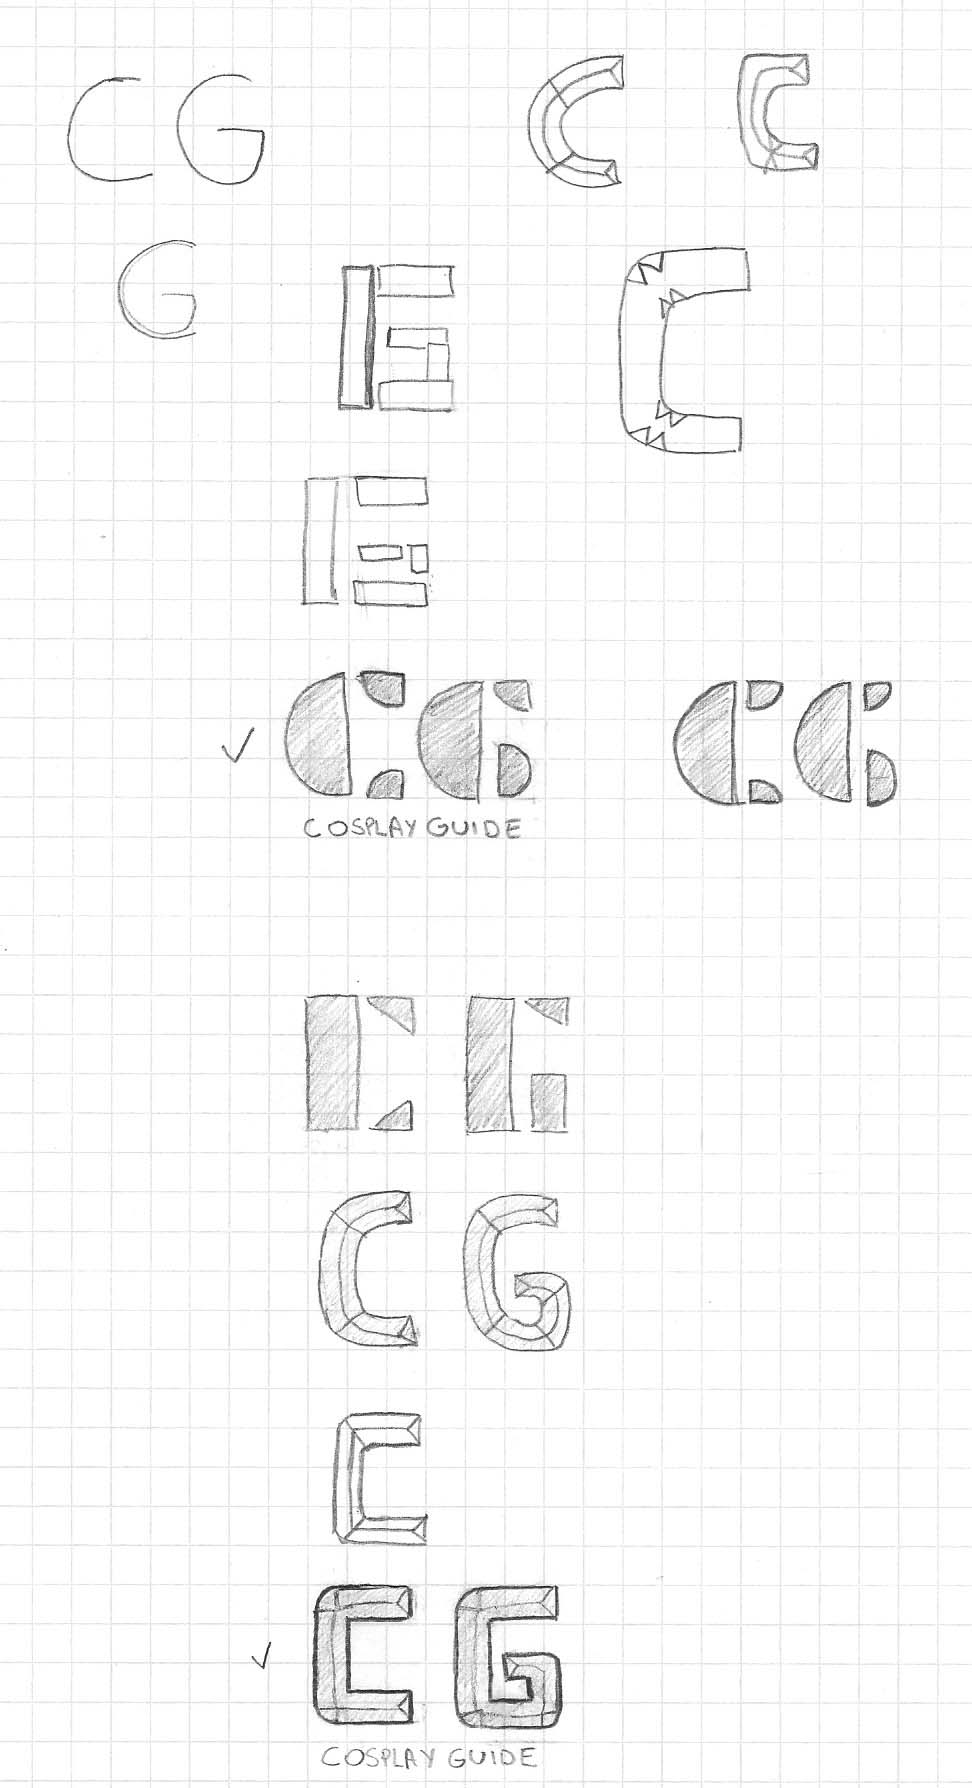 CG C C
G E C
E
CG CG
COSPLAY GUIDE
CG
CG
C
CG
COSPLAY GUIDE